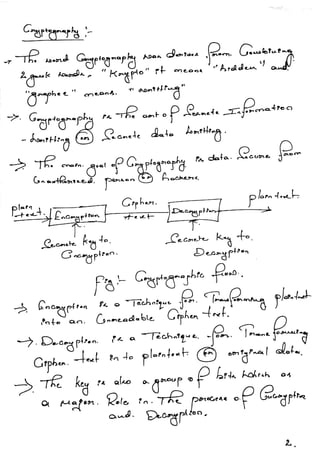 Cryptography :-
→ The word Cryptography was derived from Combining
2 greek words, "Krypto" it means "hidden" and
"graphe e" means "writing"
→ Cryptography is The art of Secrete Information
- writting (or) Secrete data writting.
→ The main goal of Cryptography is data Secure from
Unauthorized person (or) hackers.
plain text → Encryption Cipher text Decryption → plain text
Secrete key to Encryption Secrete key to Decryption
Fig :- Cryptographic process.
→ Encryption is a Technique for Transforming plaintext
into an Unreadable Cipher text.
→ Decryption is a Technique for Transforming
Cipher text in to plaintext (or) original data.
→ The key is also a group of bits which as
a major Role in The process of Encryption
and Decryption.
2.